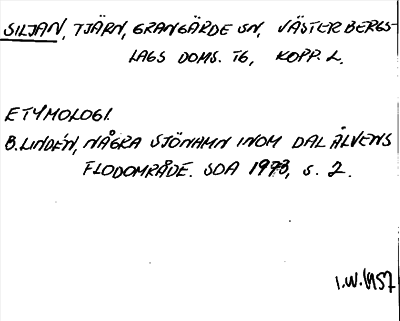 SILJAN, TJÄRN, GRANGÄRDE SN, VÄSTERBERGS-
LAGS DOMS. TG, KOPP. L.
ETYMOLOGI.
B. LINDÉN, NÅGRA SJÖNAMN INOM DALÄLVENS
FLODOMRÅDE. SDA 1973, S. 2.
I.W.